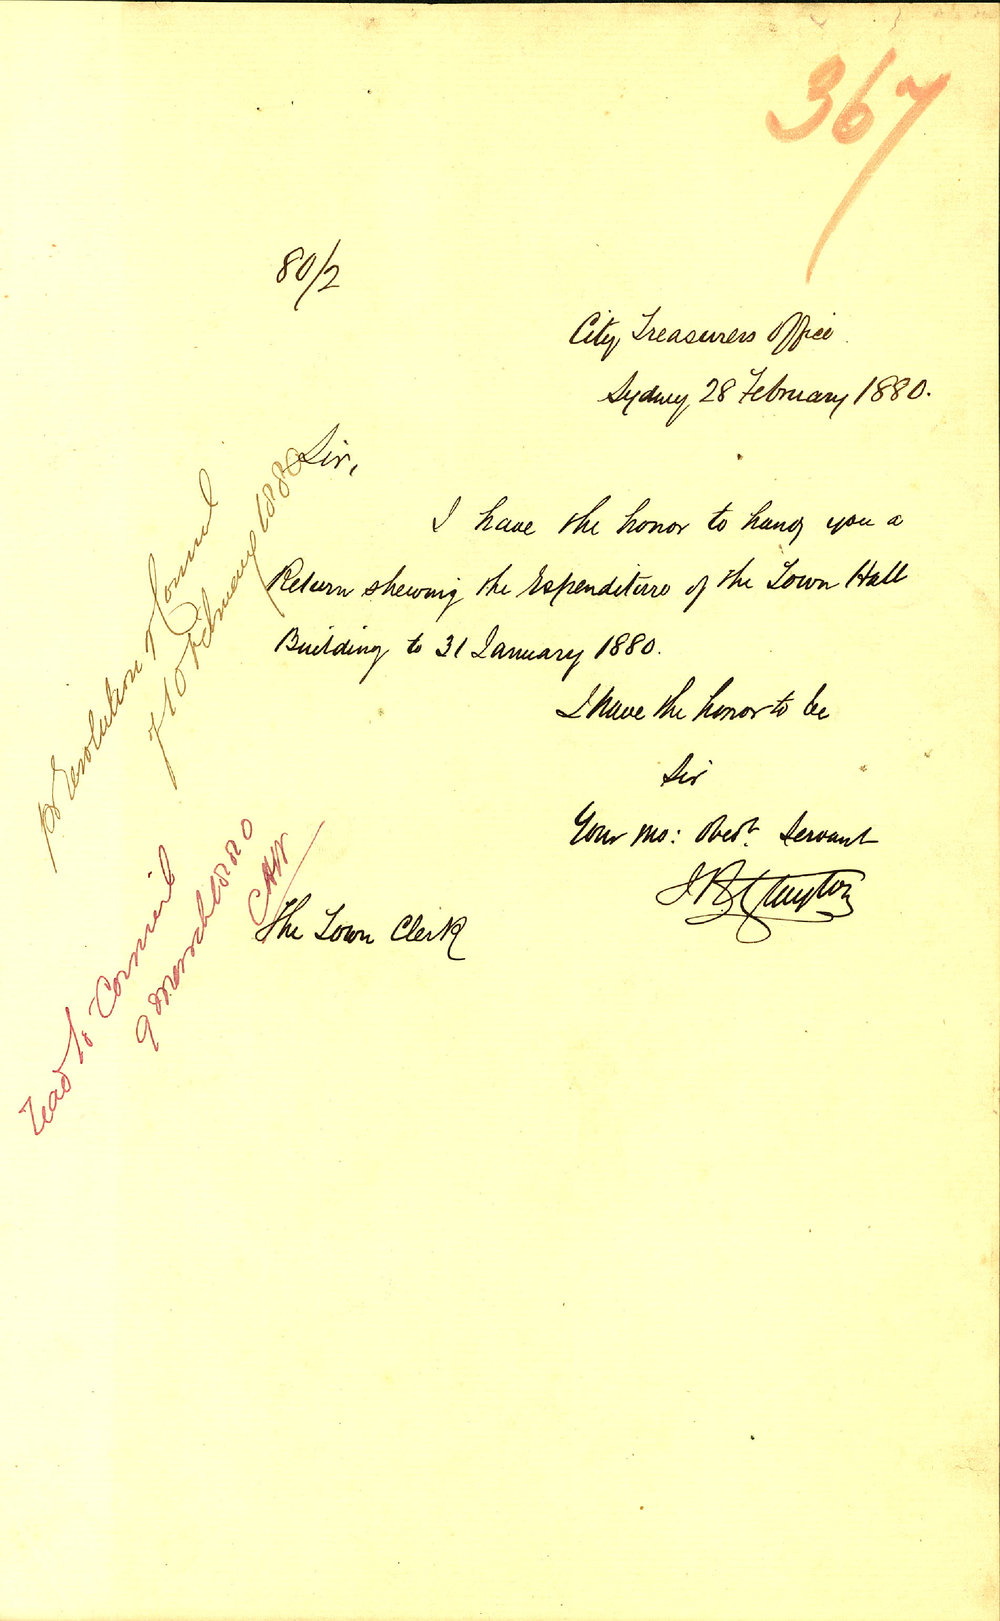 367
80/2
City Treasurers Office
Sydney 28 February 1880.
Sir,
I have the honor to hand you a
Return shewing the Expenditure of the Town Hall
Building to 31 January 1880.
I have the honor to be
Sir
Your mo: Obedt. Servant
The Town Clerk
Resolution of Council
of 10 February 1880
read to Council
9 March 1880